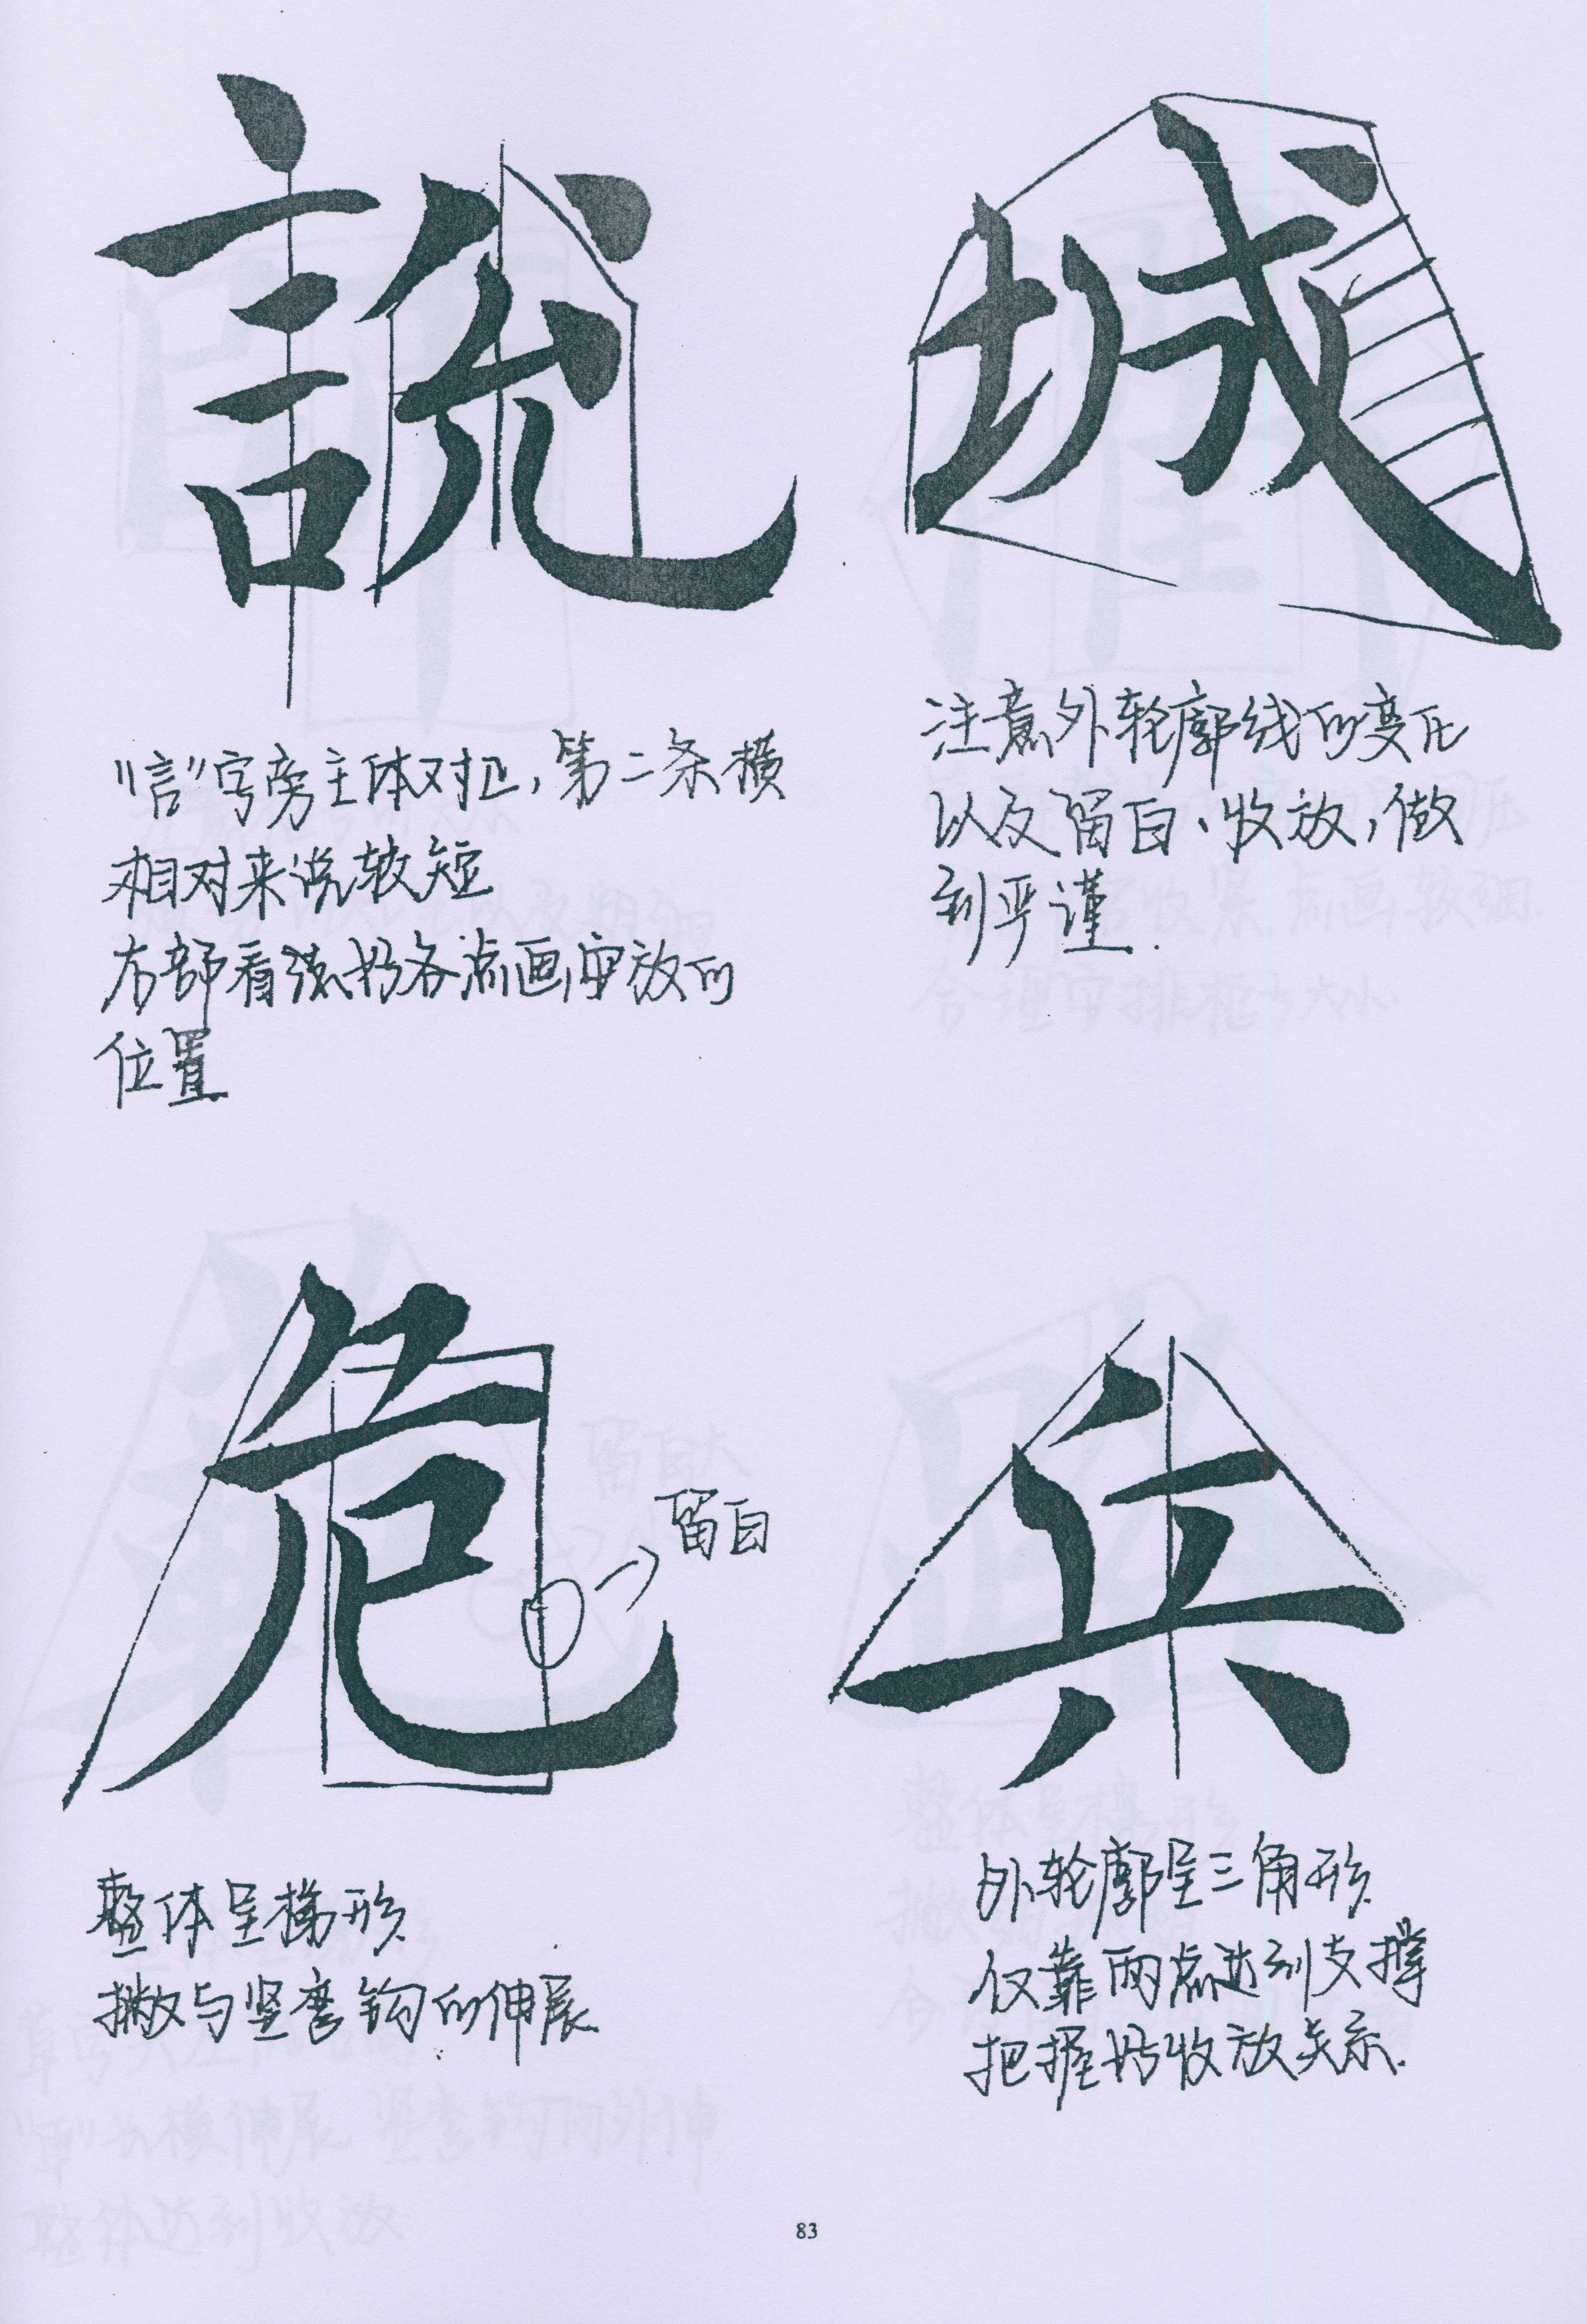 說
"言"字旁主体对正，第二条横
相对来说较短
右部看清楚各点画安放的
位置
城
注意外轮廓线的变化
以及留白、收放，做
到严谨.
危
留白
整体呈梯形
撇与竖弯钩的伸展
兵
外轮廓呈三角形
仅靠两点达到支撑
把握好收放关系.
83